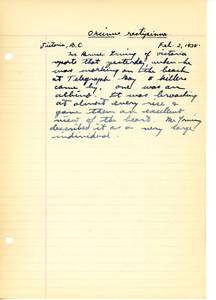 Orcinus rectipinna
Victoria, B.C. Feb. 2, 1935
Mr Bruce Irving of Victoria
reports that yesterday, when he
was working on the beach
at Telegraph Bay 2 killers
came by, one was an
albino. It was breaching
at almost every rise &
gave them an excellent
view of the beast. Mr Irving
described it as a very large
individual.